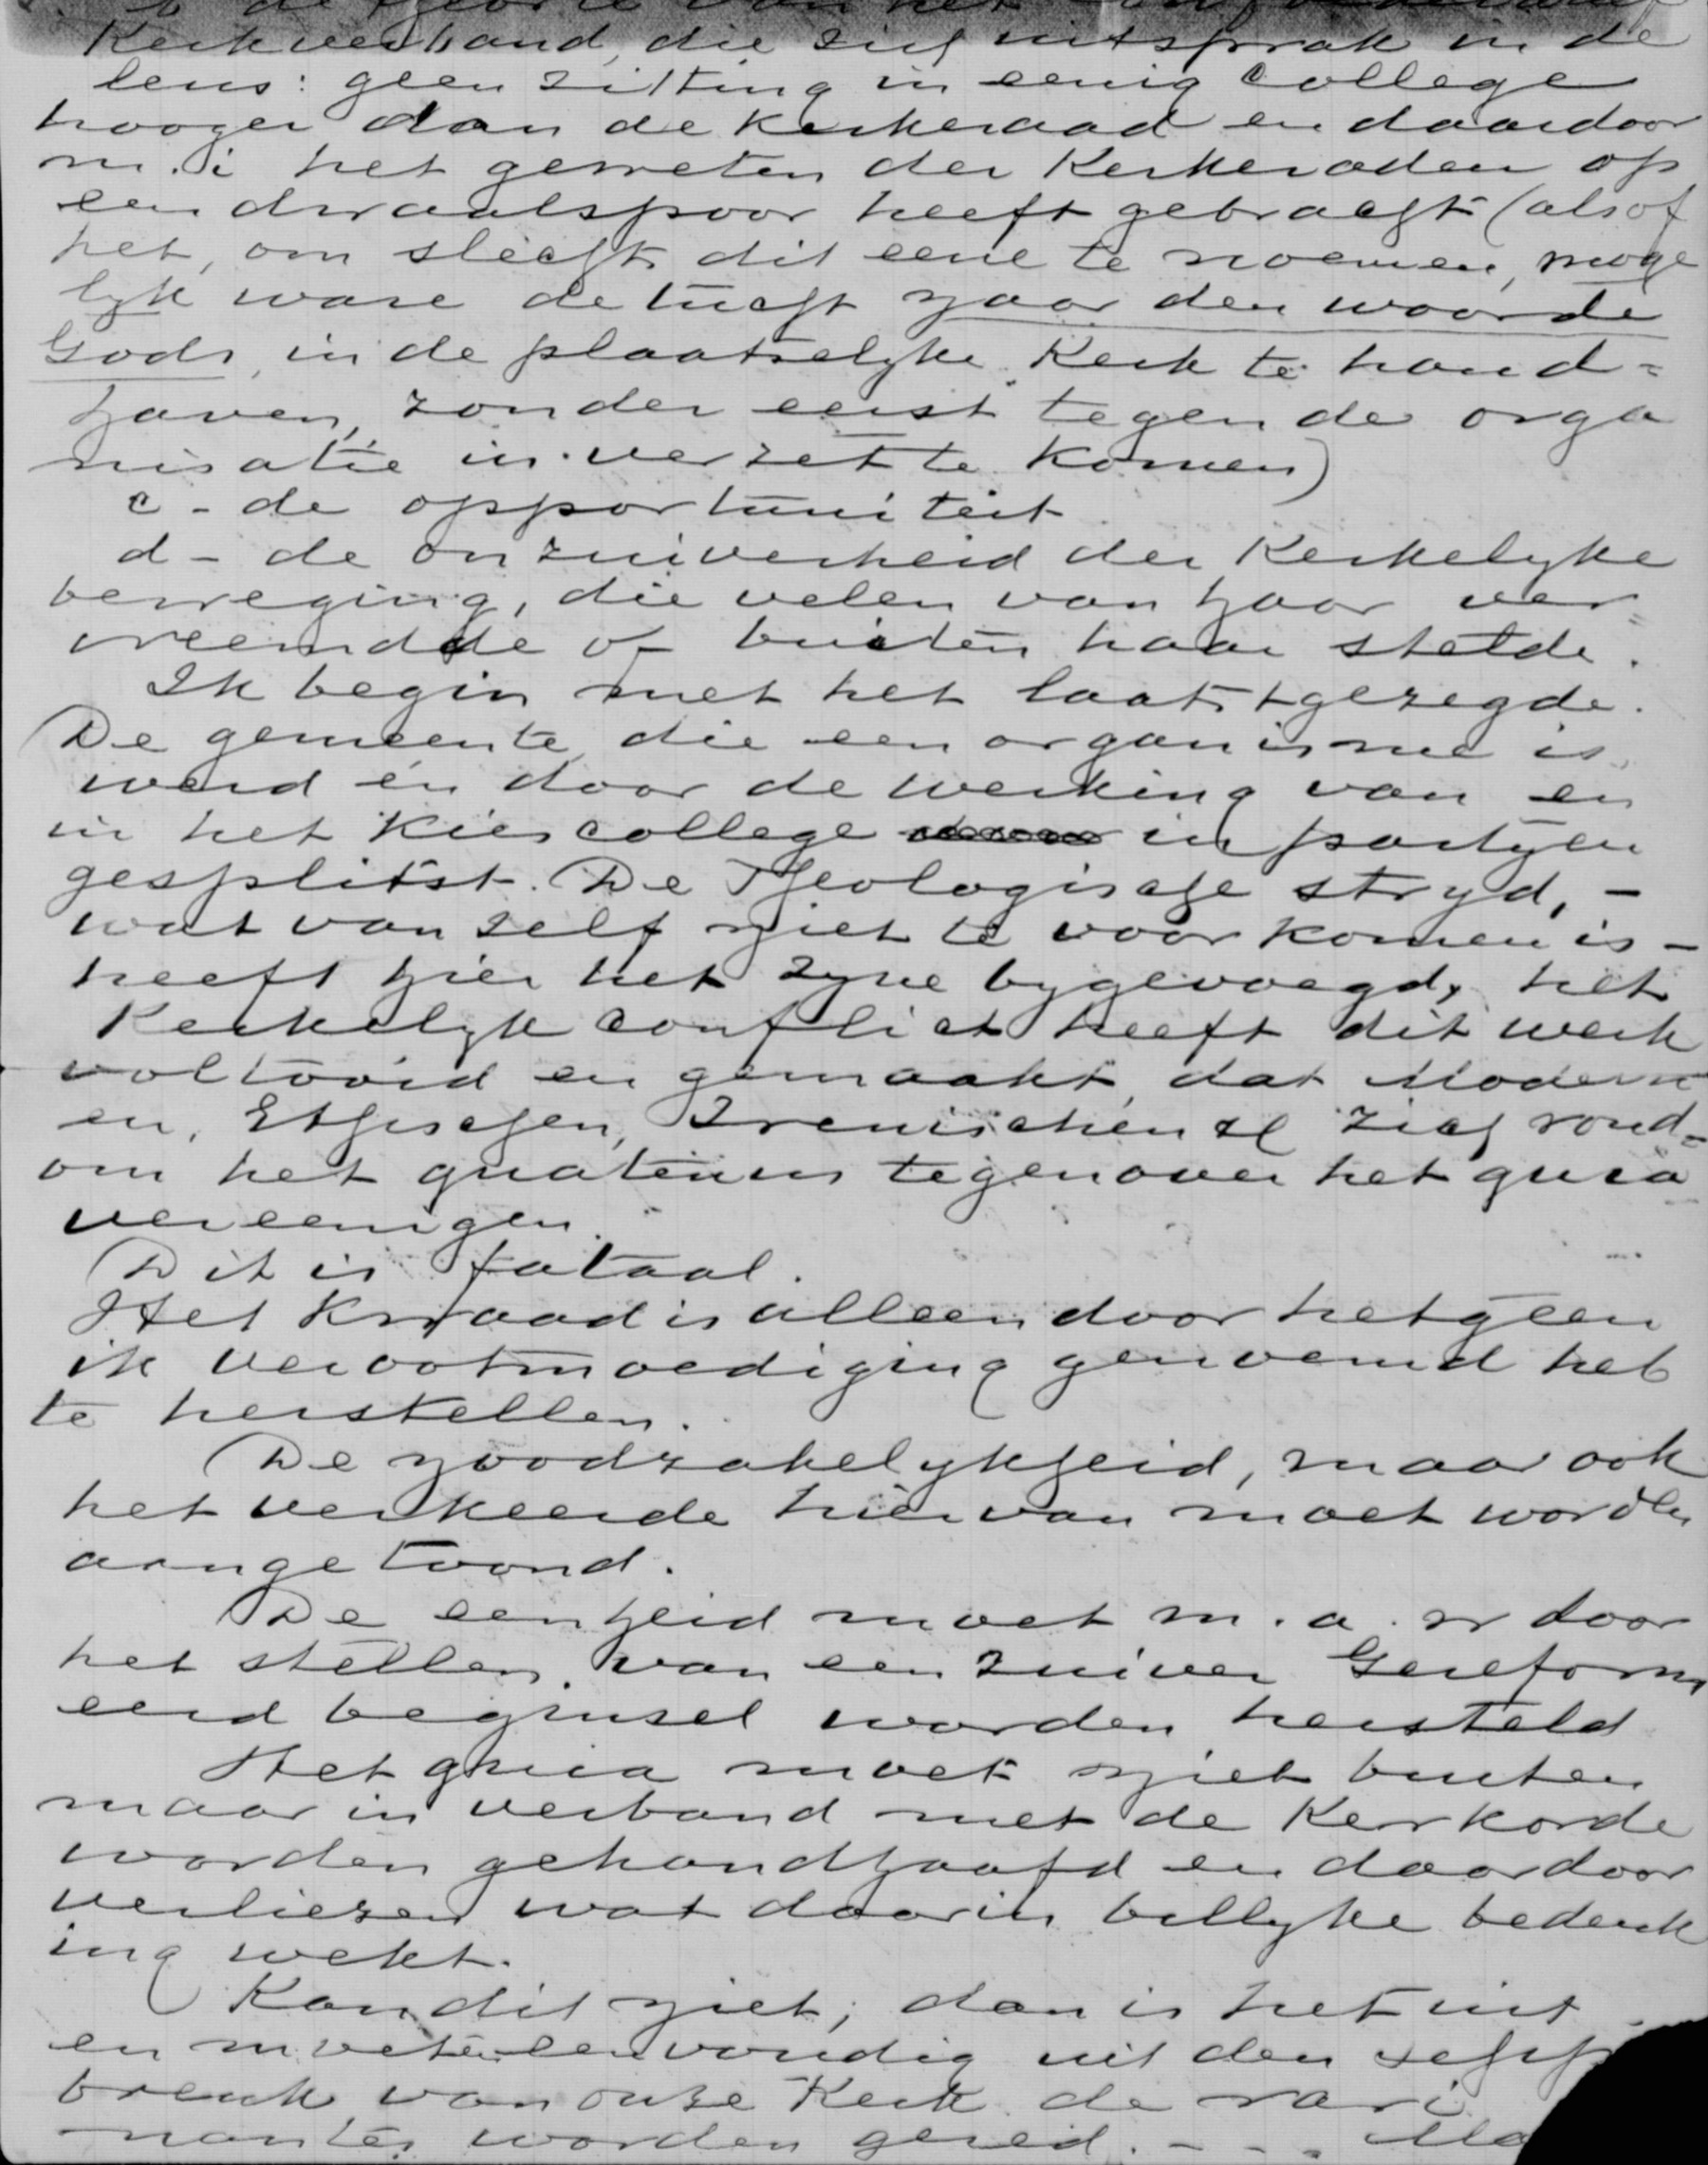 b de theorie van het
Kerkverband, die zich uitsprak in de
leus: geen zitting in eenig college
hooger dan de kerkeraad en daardoor
m. i het geweten der Kerkeraden op
een dwaalspoor heeft gebracht (alsof
het, om slechts dit eene te noemen, moge
lyk ware de tucht naar den woorde
Gods, in de plaatselyke Kerk te hand=
haven, zonder eerst tegen de orga
nisatie in verzet te komen)
c - de opportuniteit
d - de onzuiverheid der Kerkelyke
beweging, die velen van haar ver=
vreemdde of buiten haar stelde.
Ik begin met het laatstgezegde.
De gemeente, die een organisme is,
werd én door de werking van en
in het Kiescollege in partyen
gesplitst. De Theologische stryd, -
wat van zelf niet te voorkomen is -
heeft hier het zyne bygevoegd, het
Kerkelyk conflict heeft dit werk
voltooid en gemaakt, dat Modern
en, Ethischen, Irenischen zich rond=
om het quatenus tegenover het quia
vereenigen.
Dit is fataal.
Het kwaad is alleen door hetgeen
ik verootmoediging genoemd heb
te herstellen.
De noodzakelykheid, maar ook
het verkeerde hiervan moet worden
aangetoond.
De eenheid moet m. a. w door
het stellen van een zuiver Gereform
eerd beginsel worden hersteld
Het quia moet niet buiten
maar in verband met de Kerkorde
worden gehandhaafd en daardoor
verliezen wat daarin billyke bedenk
ing wekt.
Kan dit niet, dan is het uit
en moeten eenvoudig uit den schip
breuk van onze Kerk de rari
nantes worden gered. - - -